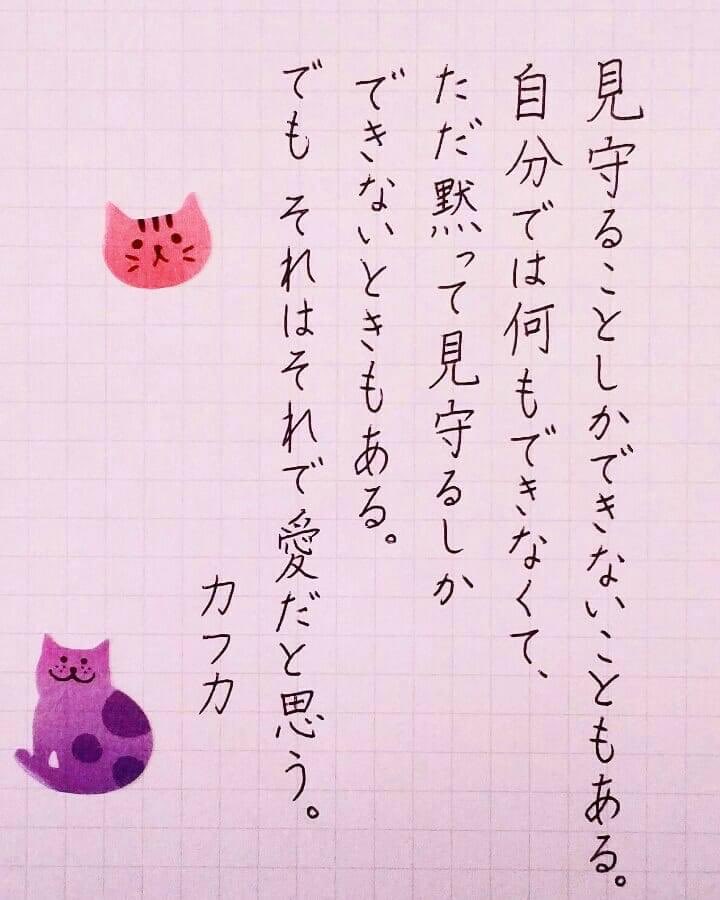 見守ることしかできないこともある。
自分では何もできなくて、
ただ黙って見守るしか
できないときもある。
でも それはそれで愛だと思う。
カフカ